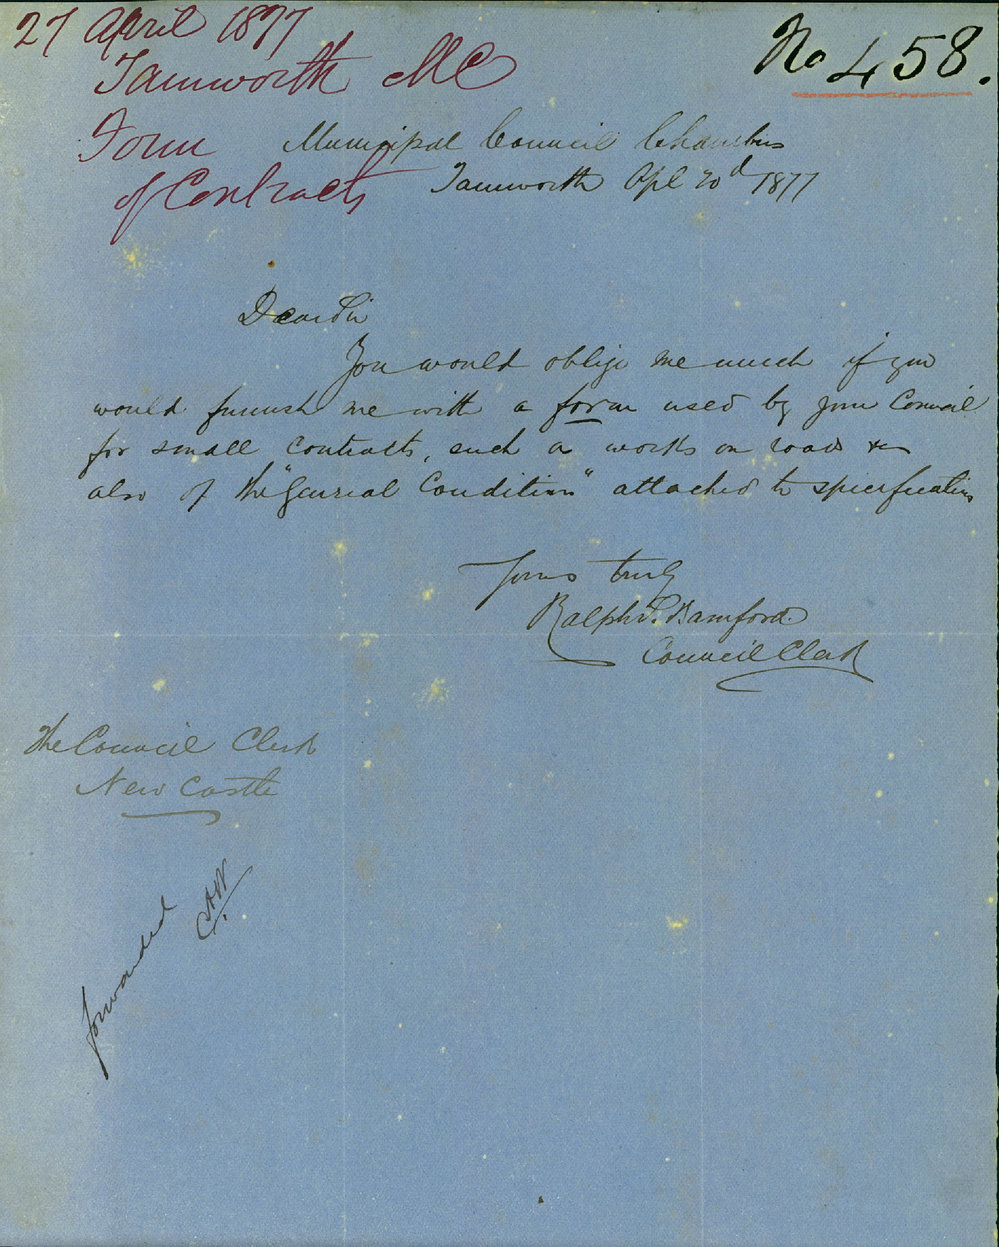 27 April 1877
Tamworth MC
Form
of Contracts
No 458.
Municipal Council Chambers
Tamworth Apl 20d 1877
Dear Sir
You would oblige me much if you
would furnish me with a form used by your Council
for small contracts, such as works on roads &c
also of the "General Conditions" attached to specifications
Yours truly
Ralph Bamford.
Council Clerk
The Council Clerk
New Castle
forwarded